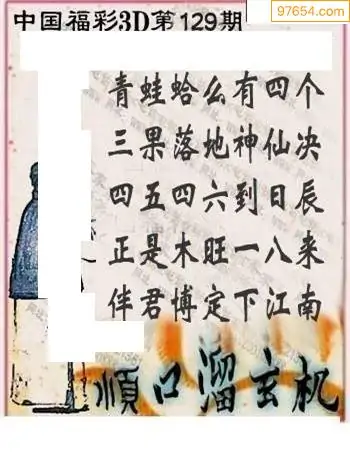 97654.com
中国福彩3D第129期
青蛙蛤么有四个
三果落地神仙决
四五四六到日辰
正是木旺一八来
伴君博定下江南
順口溜玄机